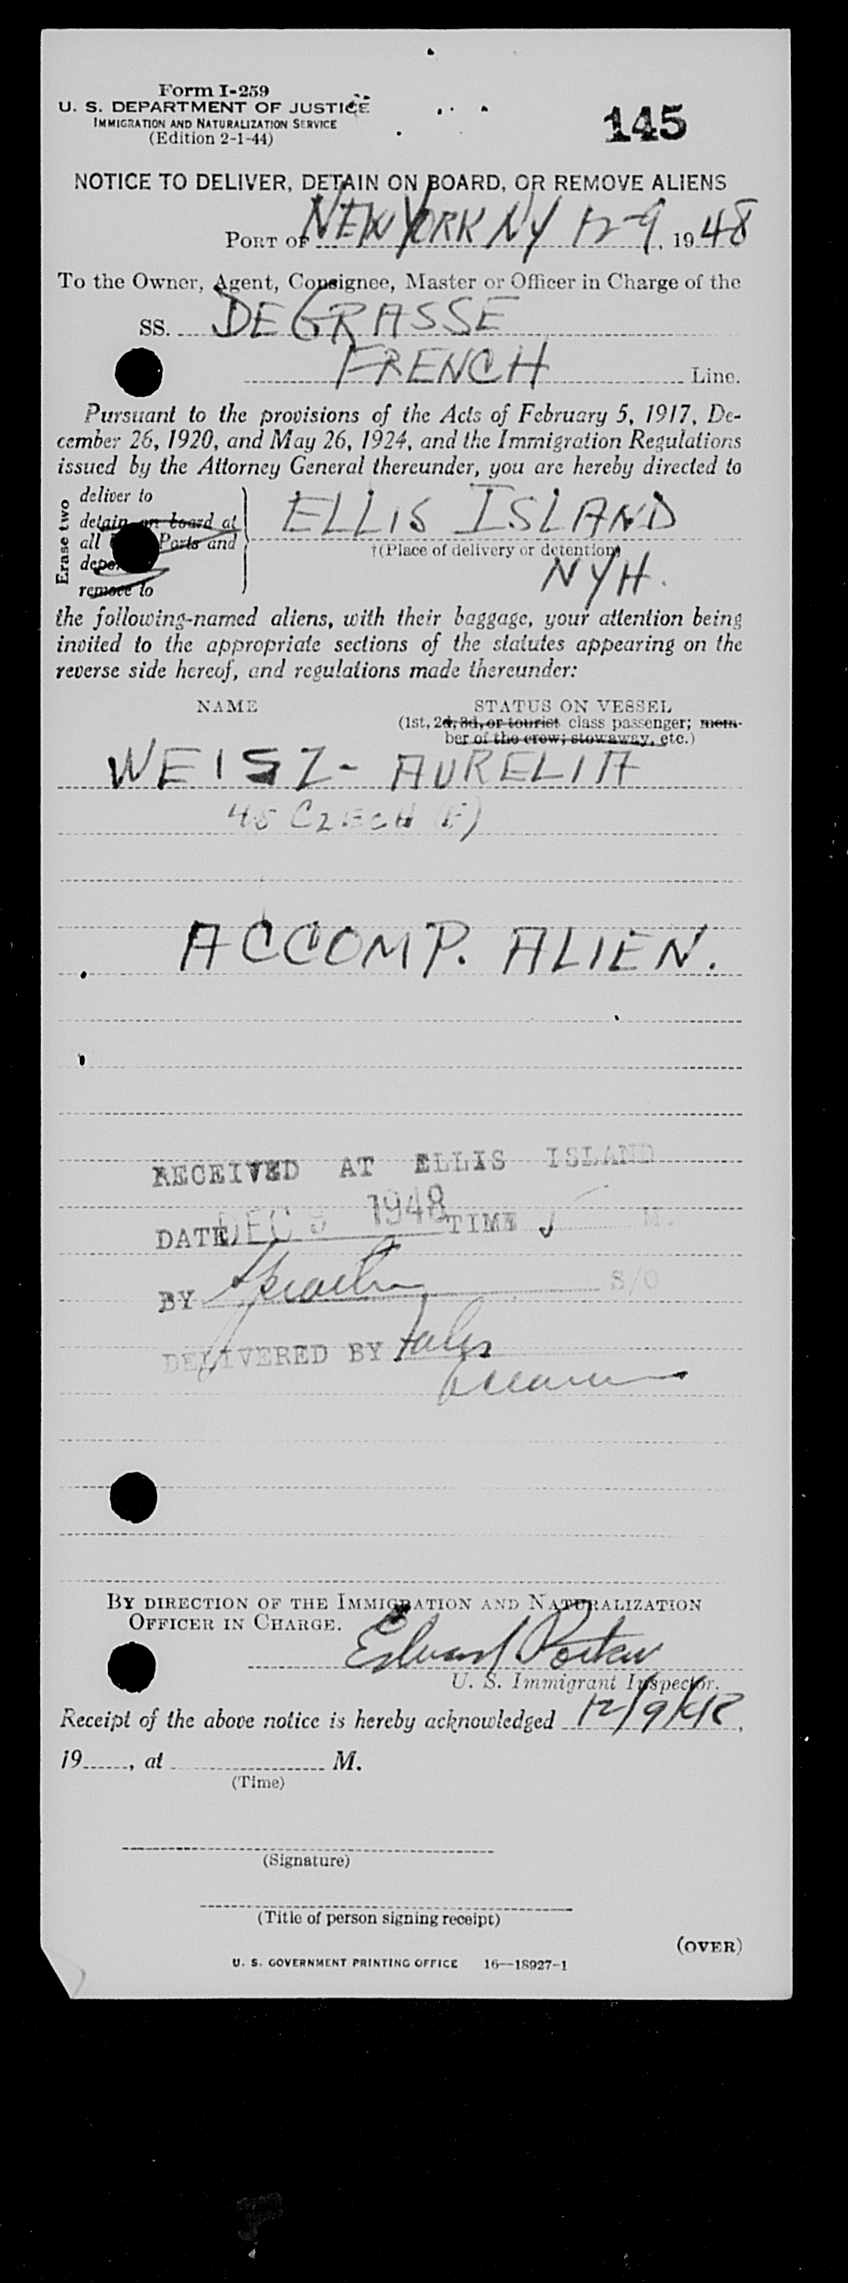 Form I-259
U. S. DEPARTMENT OF JUSTICE
IMMIGRATION AND NATURALIZATION SERVICE
(Edition 2-1-44)
145
NOTICE TO DELIVER, DETAIN ON BOARD, OR REMOVE ALIENS
PORT OF NEW YORK NY 12-9, 1948
To the Owner, Agent, Consignee, Master or Officer in Charge of the
SS. DEGRASSE
FRENCH Line.
Pursuant to the provisions of the Acts of February 5, 1917, De-
cember 26, 1920, and May 26, 1924, and the Immigration Regulations
issued by the Attorney General thereunder, you are hereby directed to
Erase two
deliver to
detain on board at
all Ports and
remove to
ELLIS ISLAND
†(Place of delivery or detention)
NYH.
the following-named aliens, with their baggage, your attention being
invited to the appropriate sections of the statutes appearing on the
reverse side hereof, and regulations made thereunder:
NAME STATUS ON VESSEL
(1st, 2d, 3d, or tourist class passenger; mem-
ber of the crew; stowaway, etc.)
WEISZ - AURELIA
45 CZECH (F)
ACCOMP. ALIEN.
RECEIVED AT ELLIS ISLAND
DATE DEC 9 1948 TIME M.
BY S/O
DELIVERED BY
BY DIRECTION OF THE IMMIGRATION AND NATURALIZATION
OFFICER IN CHARGE.
Edward
U. S. Immigrant Inspector.
Receipt of the above notice is hereby acknowledged 12/9/48,
19......, at M.
(Time)
(Signature)
(Title of person signing receipt)
(OVER)
U. S. GOVERNMENT PRINTING OFFICE 16—18927-1